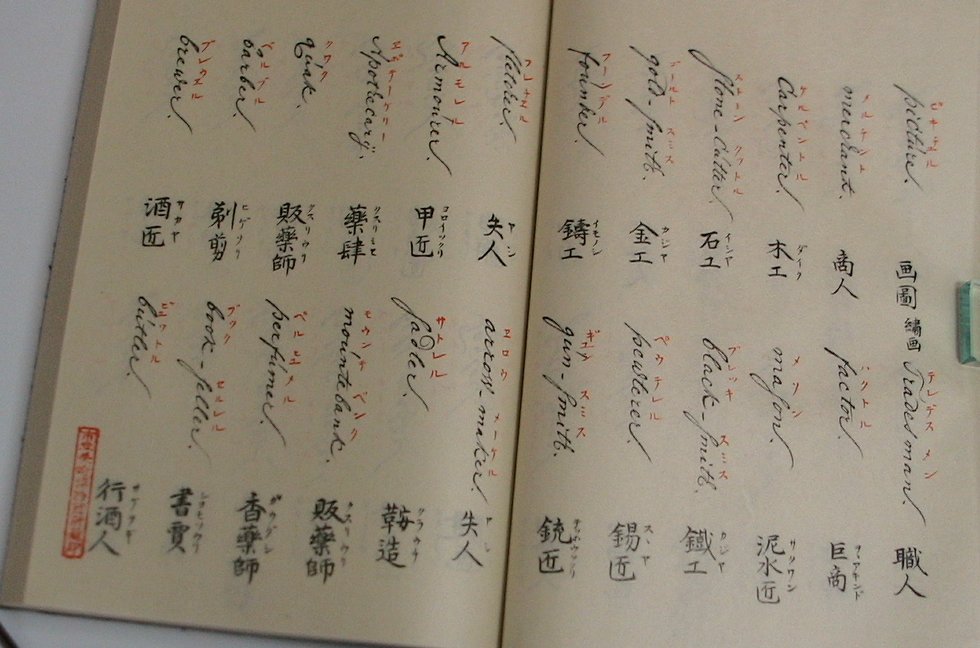 ピキチュル
picture. 画圖 繡画
テレデス メン
Tradesman. 職人
メルチェント
merchant. 商人
ハクトル
factor. 巨商
ケルペンテル
Carpenter. 木工 ダイク
メソン
maſon. 泥水匠 サクワン
ストーン クットル
ſtone-Cutter. 石工 イシヤ
ブレッキ スミス
black-ſmith. 鐵工 カジヤ
ゴールト スミス
gold-ſmith. 金工 カジヤ
ペウテレル
pewterer. 錫匠 スゞヤ
フーンデル
founder. 鑄工 イモノシ
ギュン スミス
gun-ſmith. 銃匠
フレッチェル
fletcher. 矢人 ヤシ
エロウ メーケル
arrow-maker. 矢人 ヤシ
アルモレル
Armourer. 甲匠 ヨロイツクリ
サトレル
ſadler. 鞍造 クラツクリ
エポテーケリー
Apothecary. 藥肆 クスリミセ
モウンテ ベンク
mountebank. 販藥師 クスリウリ
クワク
quak. 販藥師 クスリウリ
ペルヒュメル
perfumer. 香藥師
ベルブル
barber. 剃剪 ヒゲソリ
ブック セルレル
book-ſeller. 書賈 ショモツウリ
ブレウェル
brewer. 酒匠 サカヤ
ビュットル
butler. 行酒人